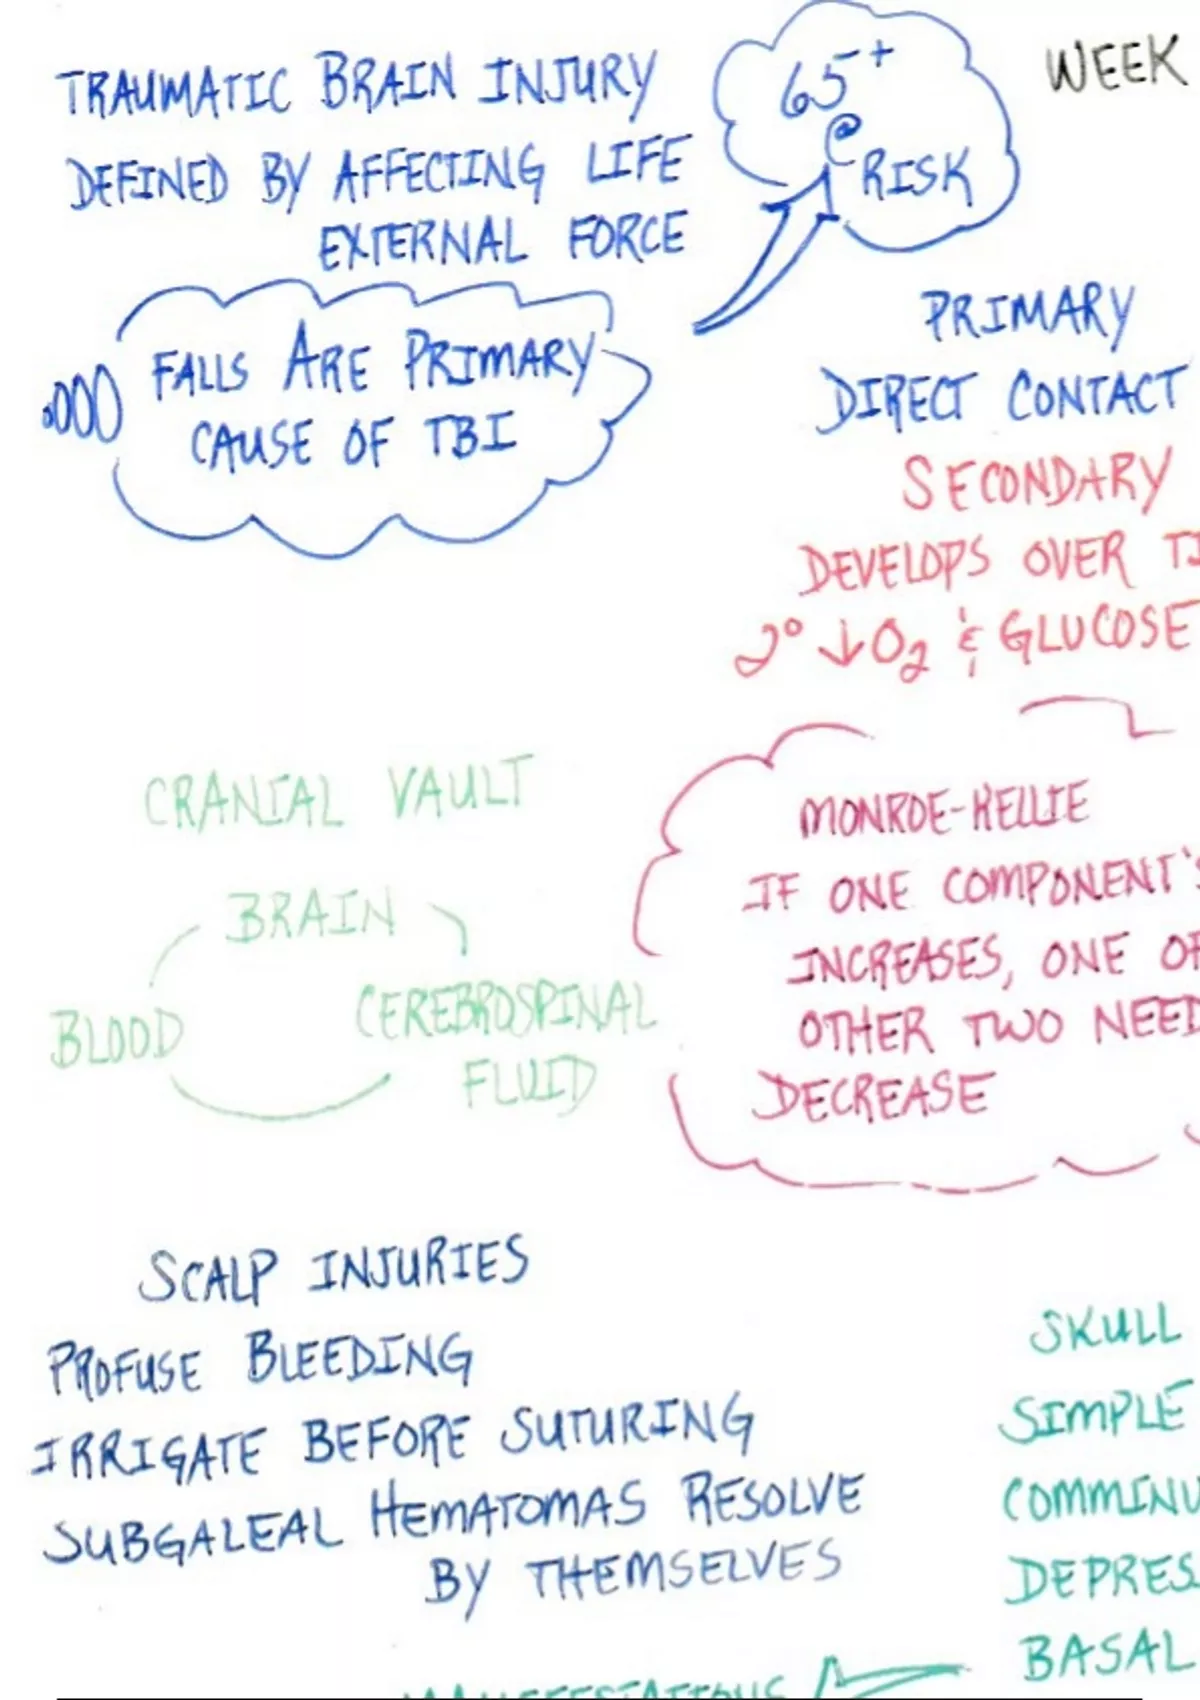 TRAUMATIC BRAIN INJURY
DEFINED BY AFFECTING LIFE
EXTERNAL FORCE
65+
@
RISK
WEEK
FALLS ARE PRIMARY
CAUSE OF TBI
PRIMARY
DIRECT CONTACT
SECONDARY
DEVELOPS OVER
2° ↓O₂ & GLUCOSE
CRANIAL VAULT
BRAIN
BLOOD
CEREBROSPINAL
FLUID
MONROE-KELLIE
IF ONE COMPONENT'S
INCREASES, ONE
OTHER TWO NEED
DECREASE
SCALP INJURIES
PROFUSE BLEEDING
IRRIGATE BEFORE SUTURING
SUBGALEAL HEMATOMAS RESOLVE
BY THEMSELVES
SKULL
SIMPLE
COMMINU
DEPRES
BASAL
MANIFESTATIONS